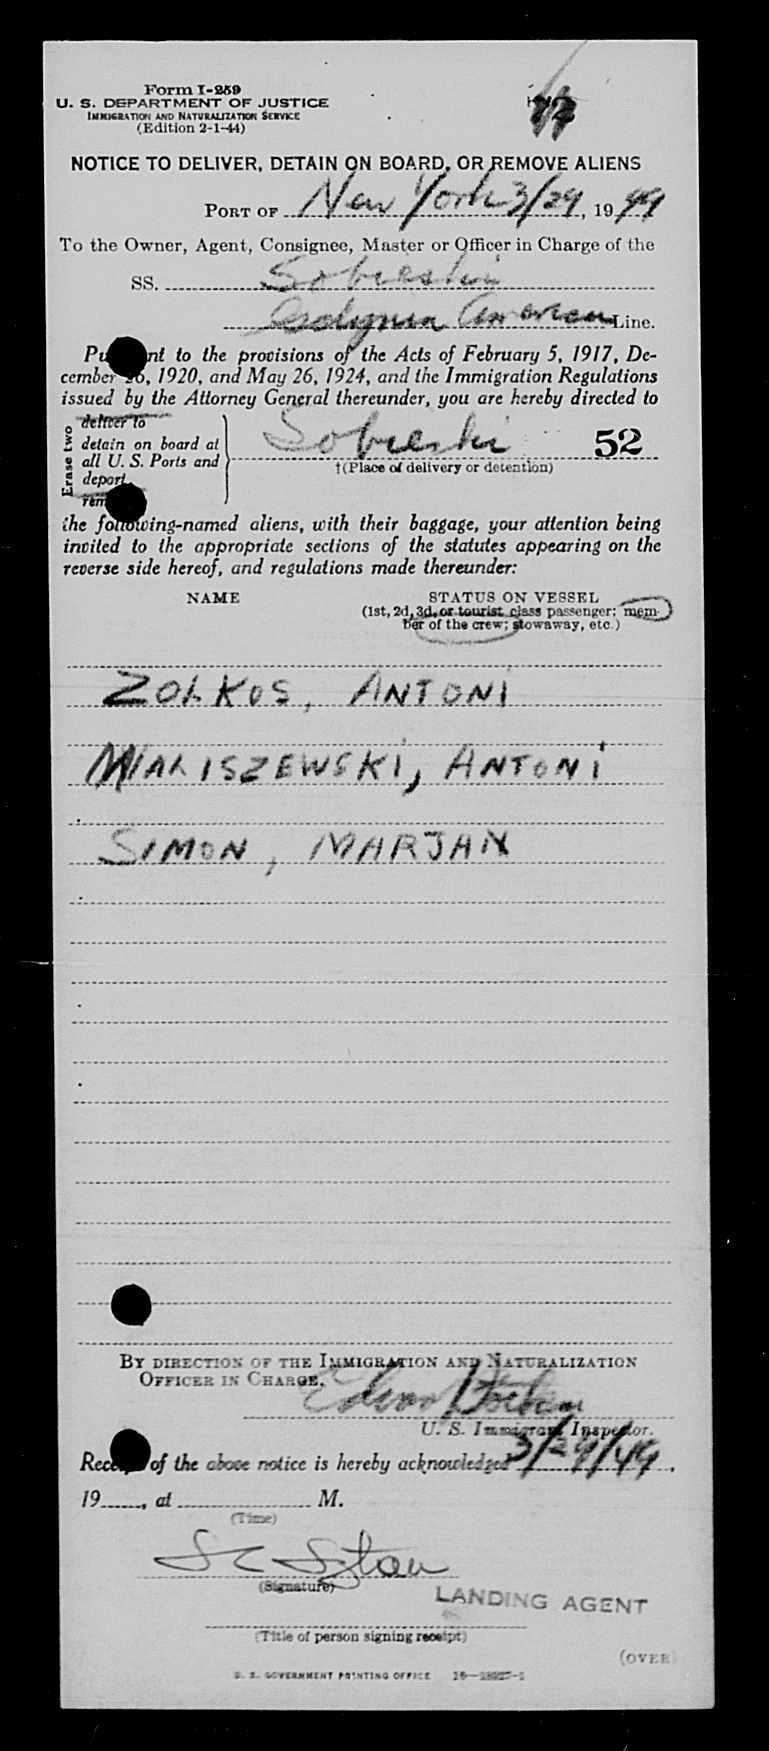 Form I-259
U. S. DEPARTMENT OF JUSTICE
IMMIGRATION AND NATURALIZATION SERVICE
(Edition 2-1-44)
NOTICE TO DELIVER, DETAIN ON BOARD, OR REMOVE ALIENS
PORT OF New York 3/29, 1949
To the Owner, Agent, Consignee, Master or Officer in Charge of the
SS. Sobieski
American Line.
nt to the provisions of the Acts of February 5, 1917, De-
cember 26, 1920, and May 26, 1924, and the Immigration Regulations
issued by the Attorney General thereunder, you are hereby directed to
Erase two
deliver to
detain on board at
all U. S. Ports and
deport
Sobieski 52
†(Place of delivery or detention)
the following-named aliens, with their baggage, your attention being
invited to the appropriate sections of the statutes appearing on the
reverse side hereof, and regulations made thereunder:
NAME STATUS ON VESSEL
(1st, 2d, 3d, or tourist class passenger; mem-
ber of the crew; stowaway, etc.)
ZOLKOS, ANTONI
MIALISZEWSKI, ANTONI
SIMON, MARJAN
BY DIRECTION OF THE IMMIGRATION AND NATURALIZATION
OFFICER IN CHARGE,
U. S. Immigrant Inspector.
Receipt of the above notice is hereby acknowledged 3/29/49,
19____, at ____ M.
(Time)
(Signature)
LANDING AGENT
(Title of person signing receipt)
(OVER)
U. S. GOVERNMENT PRINTING OFFICE